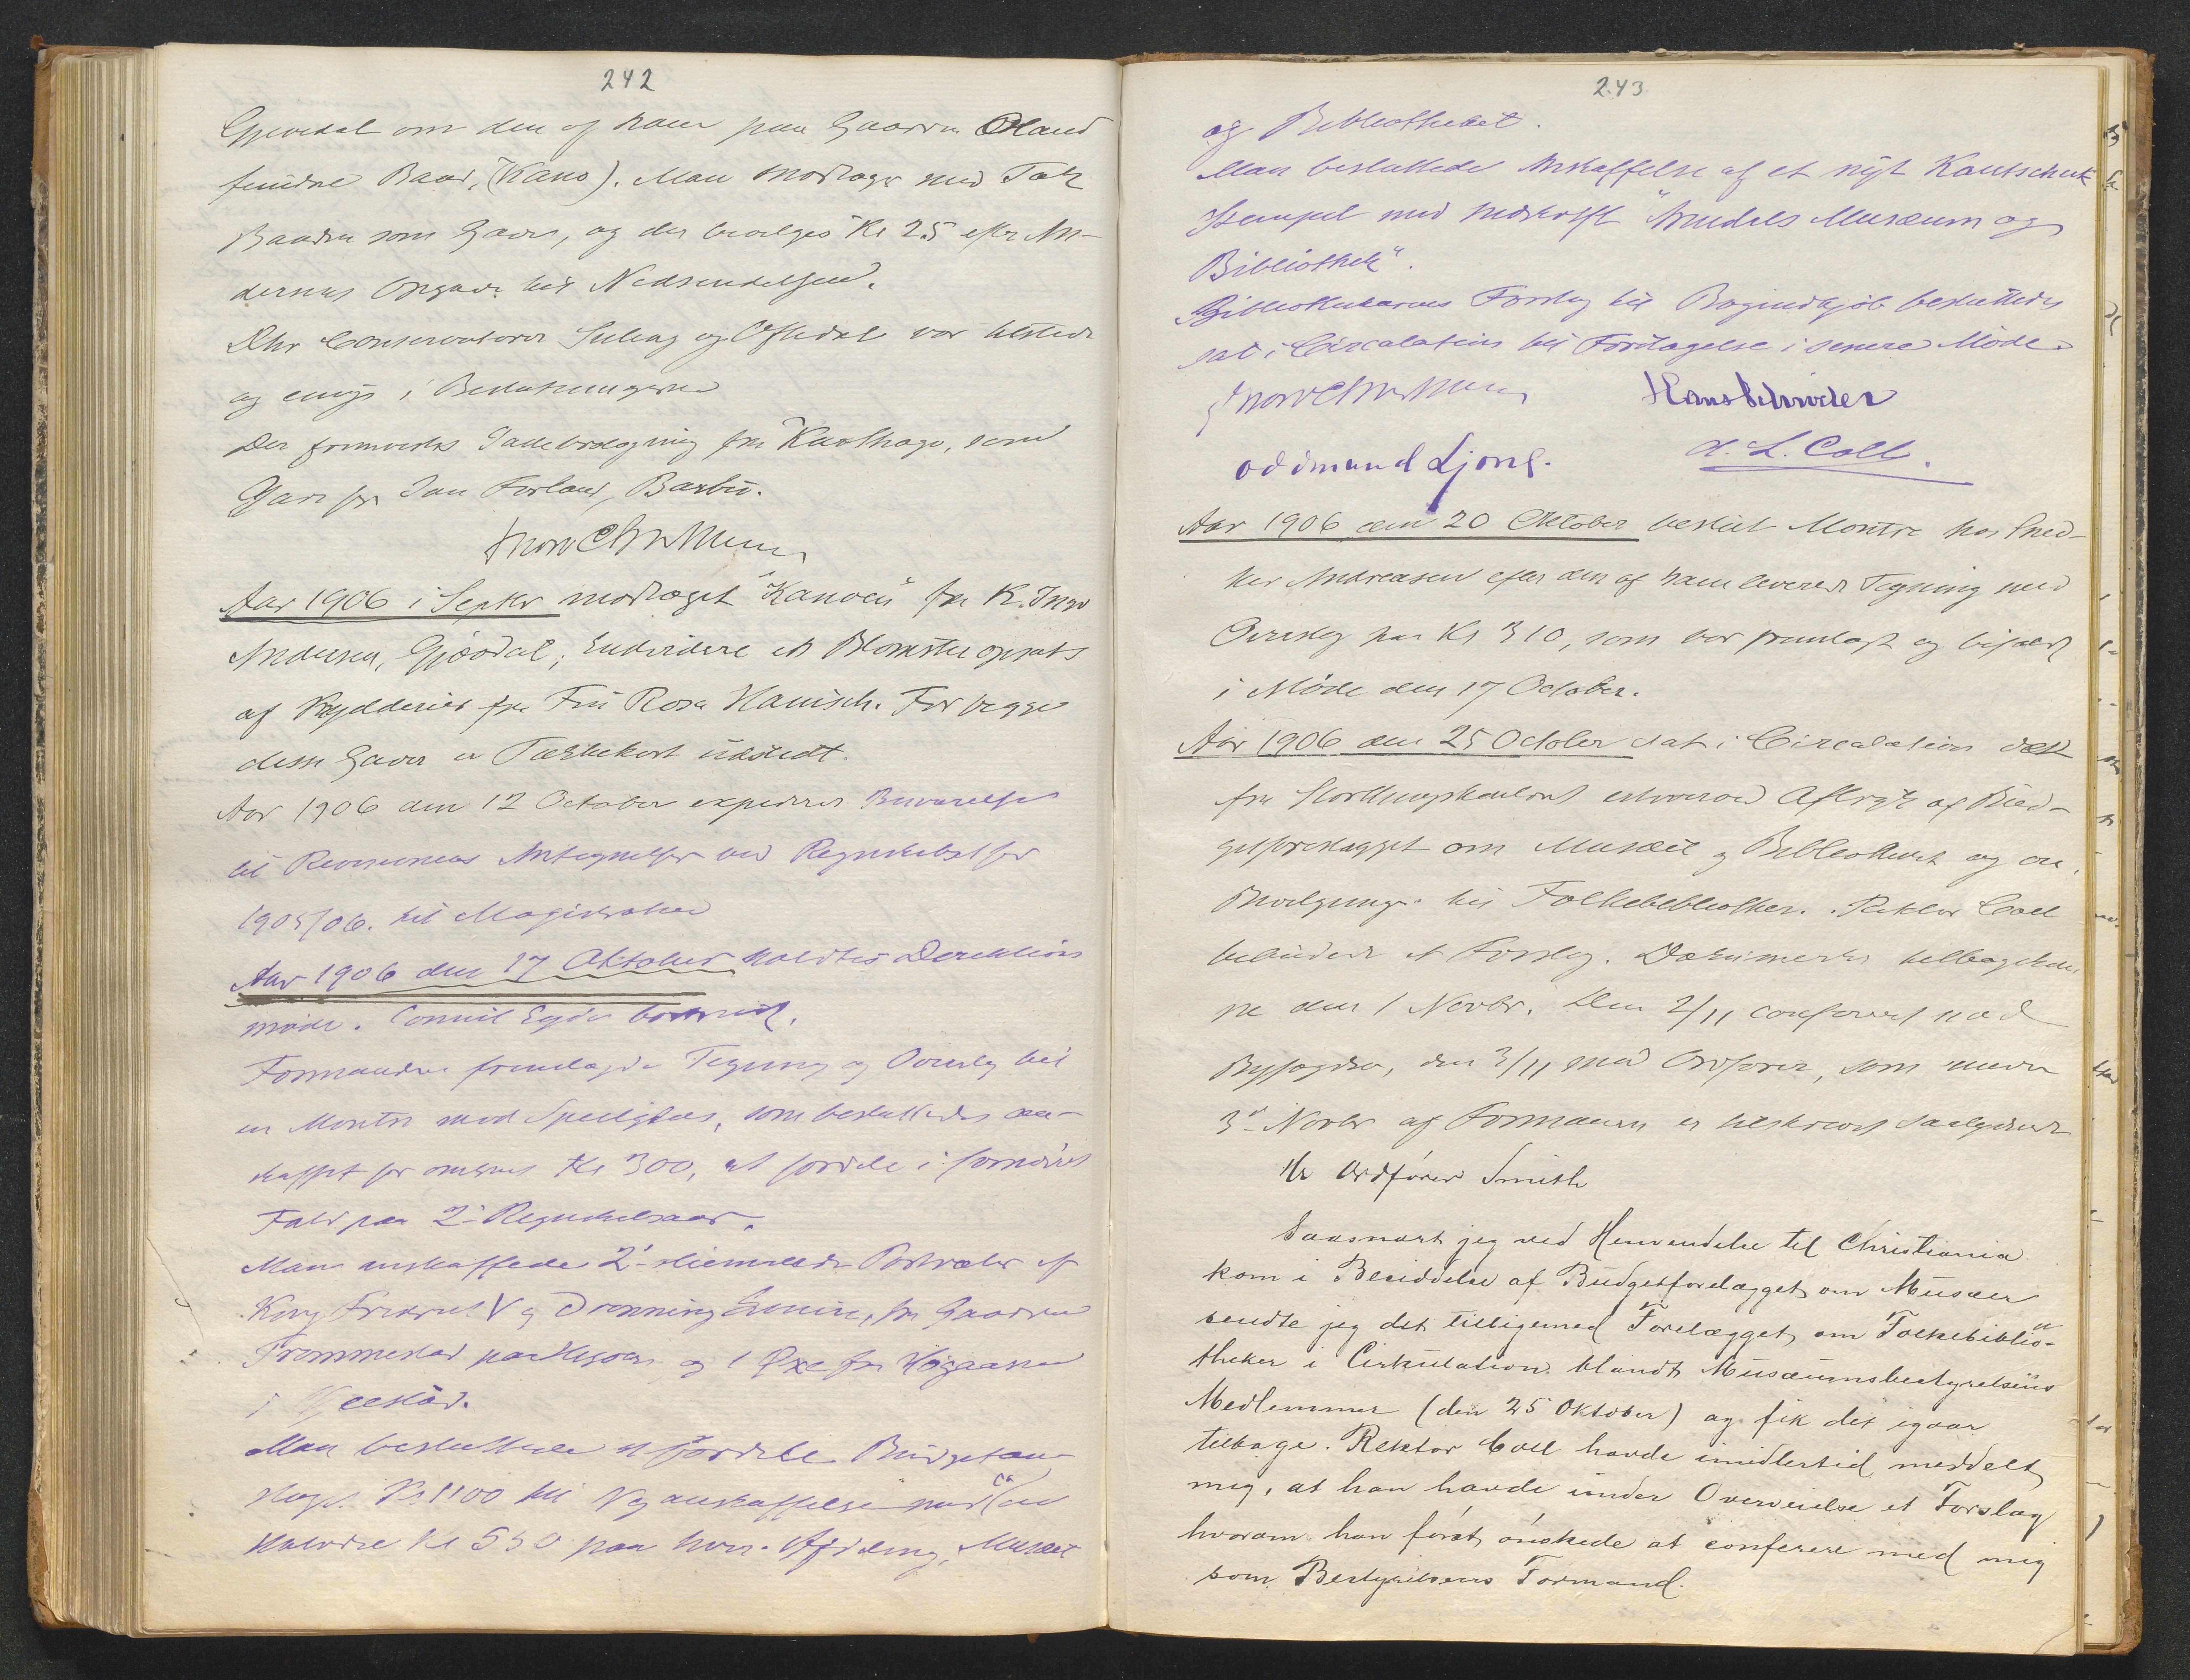 242
Gjevedal om den af ham paa Gaarden Øland
fundne Baad, (Kano). Man modtager med Tak
Baaden som Gave, og der bevilges Kr 25 efter An-
dersens Opgave til Nedsendelsen.
Dhr Conservatorer Suleng og Oftedal var tilstede
og enige i Beslutningerne
Der fremvistes fra Karthago, som
Gave fra Jan Forland, Barbu.
Aar 1906 i Septbr modtaget "Kanoen" fra K.
Andersen, Gjøvdal; Endvidere et Blomsteropsats
af Krydderier fra Fru Rosa Hanisch. For begge
disse Gaver er Takkekort udstedt.
Aar 1906 den 12 October expederes Besvarelse
til Revisionens Antegnelser ved Regnskabet for
1905/06. til Magistraten
Aar 1906 den 17 Oktober holdtes Direktions
møde. Consul Eyde bortreist.
Formanden fremlagde Tegning og Overslag til
en Montre med Speilglas, som besluttedes an-
skaffet for omkring Kr 300, at fordele i fornødent
Fald paa 2de Regnskabsaar.
Man anskaffede 2de Portræter af
Kong Fredrik V og Dronning Louise, fra Gaarden
Trommestad paa Hisøen og 1 Øxe fra
i
Man besluttede at fordele Budgetan-
slaget Kr 1100 til Nyanskaffelse med ca
Halvdelen Kr 550 paa hver Afdeling, Musæet
243
og Bibliotheket.
Man besluttede Anskaffelse af et nyt Kautschuk
Stempel med Indskrift "Arendals Musæum og
Bibliothek".
Bibliothekarens Forslag til Bogindkjøb besluttedes
sat i Circulation til Foretagelse i senere Møde.
Hans Schrøder
Oddmund Ljone.
A. L. Coll.
Aar 1906 den 20 Oktober bestilt Montre hos Sned-
ker Andreasen efter den af ham leverede Tegning med
Overslag paa Kr 310, som var fremlagt og bifaldt
i Møde den 17 October.
Aar 1906 den 25 October sat i Circulation det
fra Storthingskontoret erhvervede Aftryk af Bud-
getforelægget om Musæet og Bibliotheket og om
Bevilgning til Folkebibliothek. Rektor Coll
bebudede et Forslag. Dokumentet tilbagekom
den 1 Novbr. Den 2/11 confereret med
Byfogden, den 3/11 med Ordfører, som under
3die Novbr af Formanden er tilskrevet saalydende
Hr Ordfører Smith
Saasnart jeg ved Henvendelse til Christiania
kom i Besiddelse af Budgetforelægget om Musæer
sendte jeg det tilligemed Forelægget om Folkebiblio-
theker i Cirkulation blandt Musæumsbestyrelsens
Medlemmer (den 25 Oktober) og fik det igaar
tilbage. Rektor Coll havde imidlertid meddelt
mig, at han havde under Overveielse et Forslag
hvorom han først ønskede at conferere med mig
som Bestyrelsens Formand.